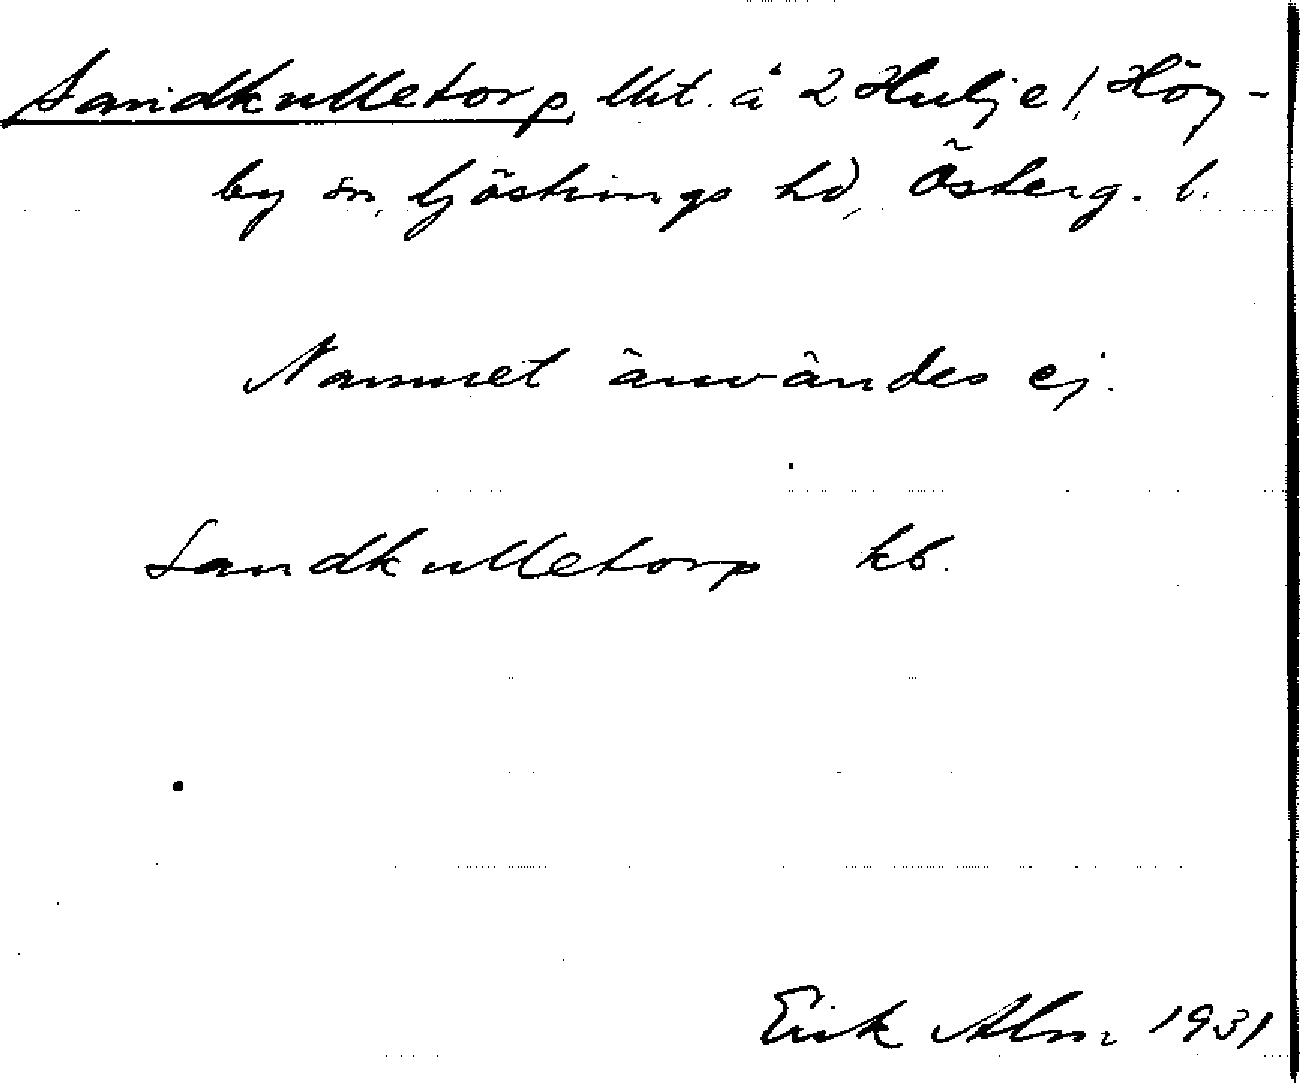 Sandkulletorp, lht. å 2 Hulje/, Hög-
by sn, Göstrings hd, Österg. l.
Namnet användes ej.
Sandkulletorp kb.
Erik Alm 1931